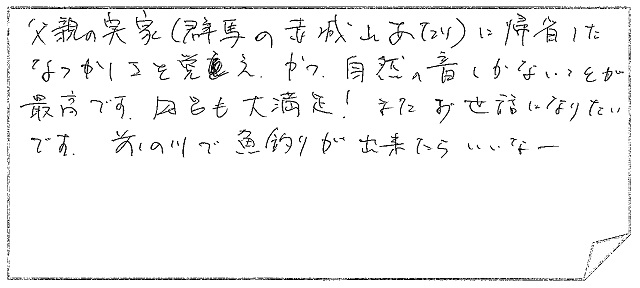 父親の実家(群馬の赤城山あたり)に帰省した
なつかしさを覚え、かつ、自然の音しかないことが
最高です。お風呂も大満足！またお世話になりたい
です。前の川で魚釣りが出来たらいいなー